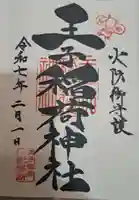 火防御守護
王子稲荷神社
令和七年 二月一日